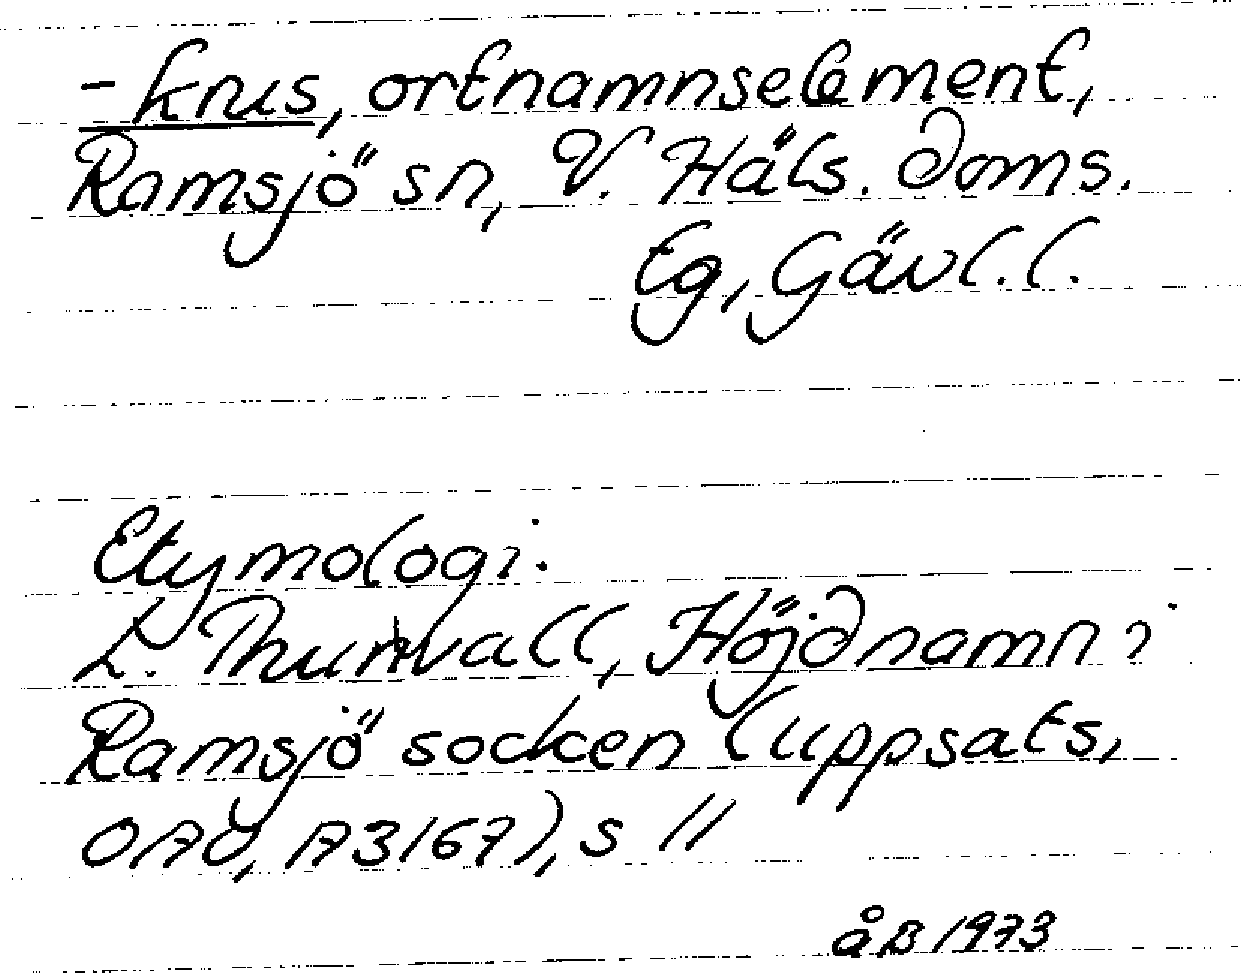 -knus, ortnamnselement,
Ramsjö sn, V. Häls. doms.
Eg, Gävl. l.
Etymologi:
L. Thunvall, Höjdnamn i
Ramsjö socken (uppsats,
OAU, A3167), s 11
åB 1973